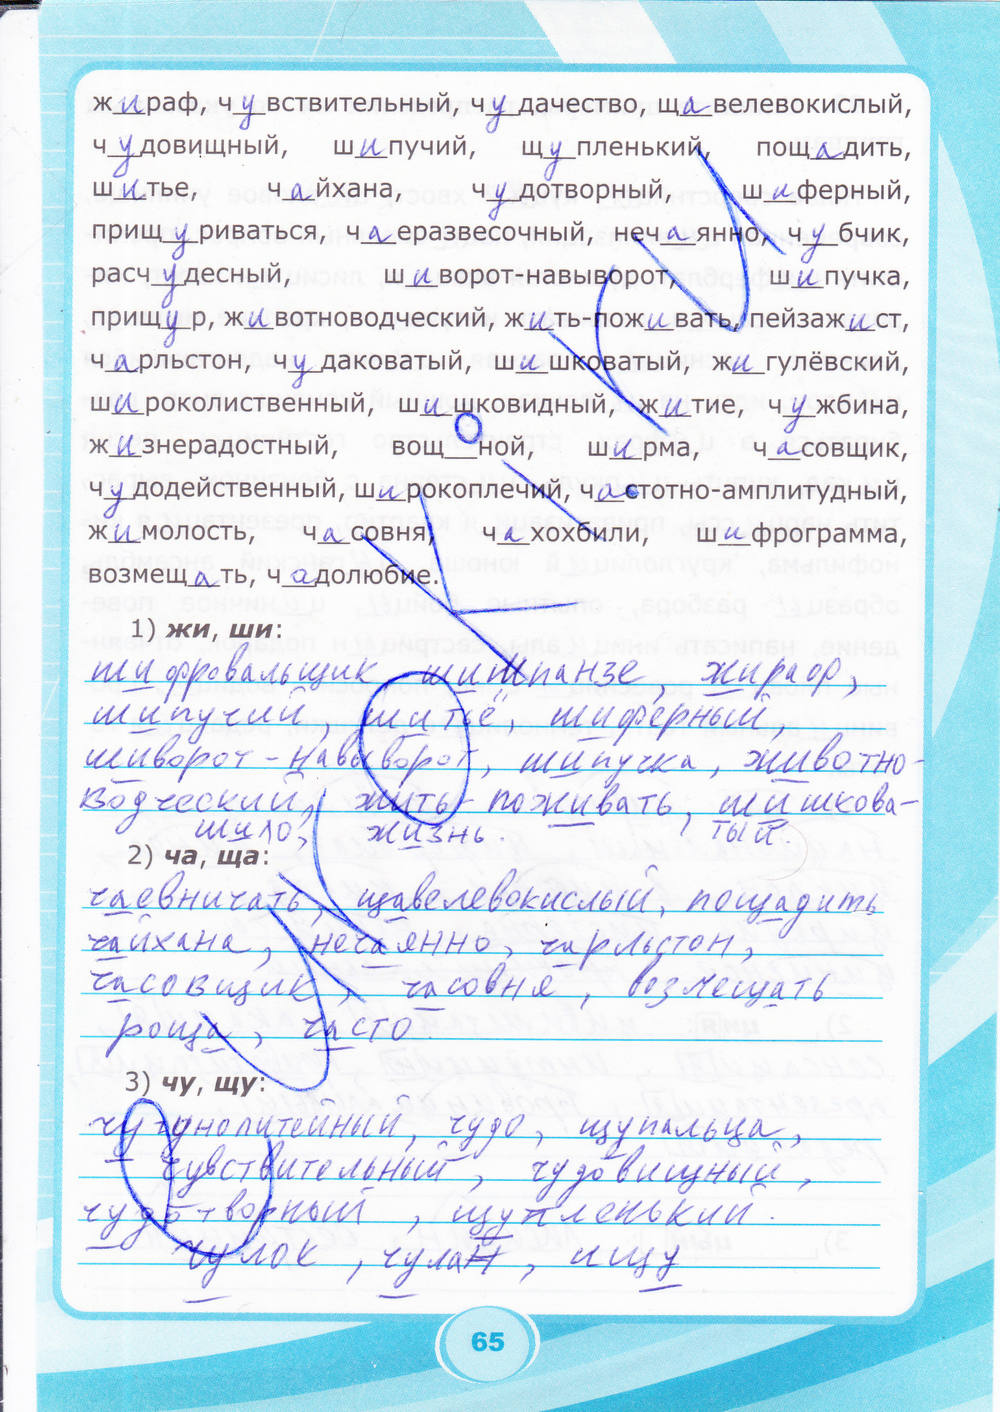 жираф, чувствительный, чудачество, щавелевокислый,
чудовищный, шипучий, щупленький, пощадить,
шитье, чайхана, чудотворный, шиферный,
прищуриваться, чаеразвесочный, нечаянно, чубчик,
расчудесный, шиворот-навыворот, шипучка,
прищур, животноводческий, жить-поживать, пейзажист,
чарльстон, чудаковатый, шишковатый, жигулёвский,
широколиственный, шишковидный, житие, чужбина,
жизнерадостный, вощ__ной, ширма, часовщик,
чудодейственный, широкоплечий, частотно-амплитудный,
жимолость, часовня, чахохбили, шифрограмма,
возмещать, чадолюбие.
1) жи, ши:
шифровальщик шимпанзе жираф,
шипучий шитьё, шиферный,
шиворот-навыворот, шипучка, животно-
водческий, жить-поживать, шишкова-
шило, жизнь. тый.
2) ча, ща:
чаевничать, щавелевокислый, пощадить
чайхана, нечаянно, чарльстон,
часовщик, часовня, возмещать
роща, часто.
3) чу, щу:
чугунолитейный, чудо, щупальца,
чувствительный, чудовищный,
чудотворный, щупленький.
чулок, чулан, ищу
65